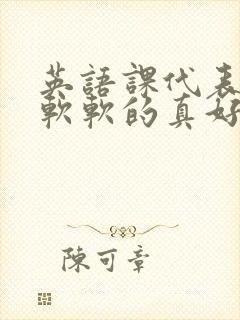 英語課代表
軟軟的真好
陳可章